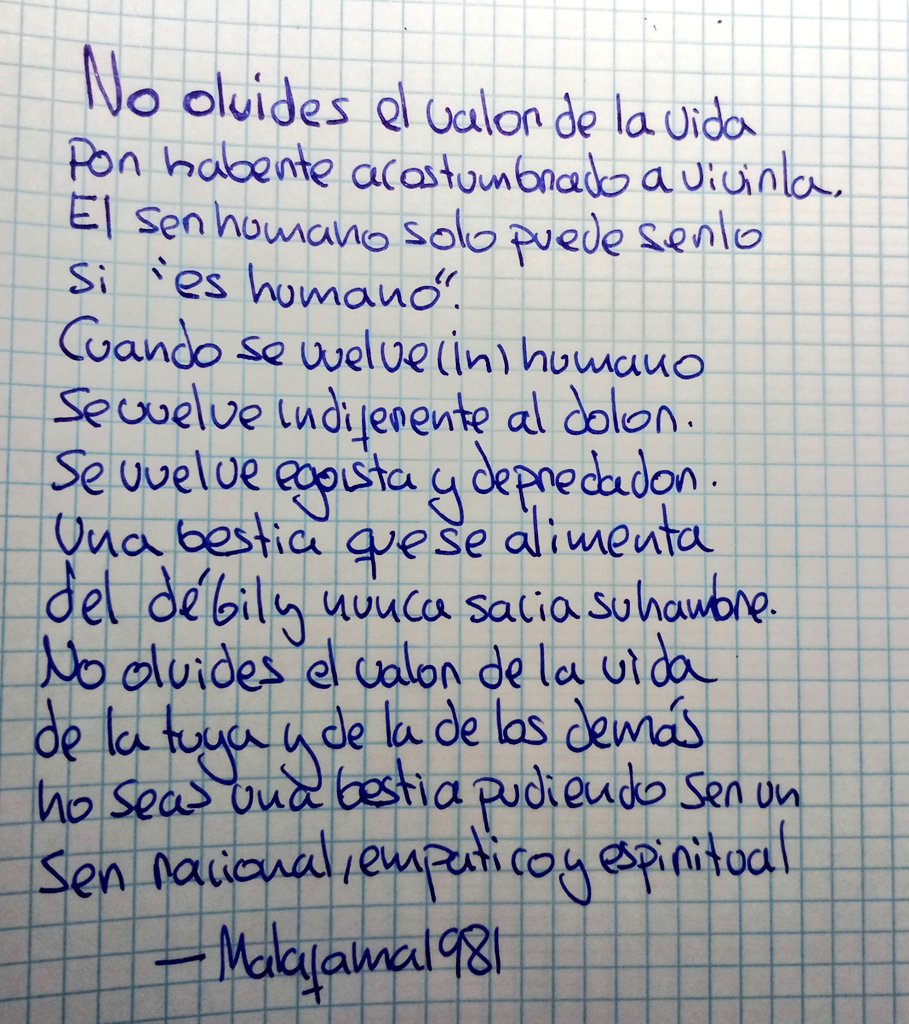 No olvides el valor de la vida
Por haberte acostumbrado a vivirla.
El ser humano solo puede serlo
si "es humano".
Cuando se vuelve (in) humano
Se vuelve indiferente al dolor.
Se vuelve egoista y depredador.
Una bestia que se alimenta
del débil y nunca sacia su hambre.
No olvides el valor de la vida
de la tuya y de la de los demás
no seas una bestia pudiendo ser un
ser racional, empatico y espiritual
— Malafama1981